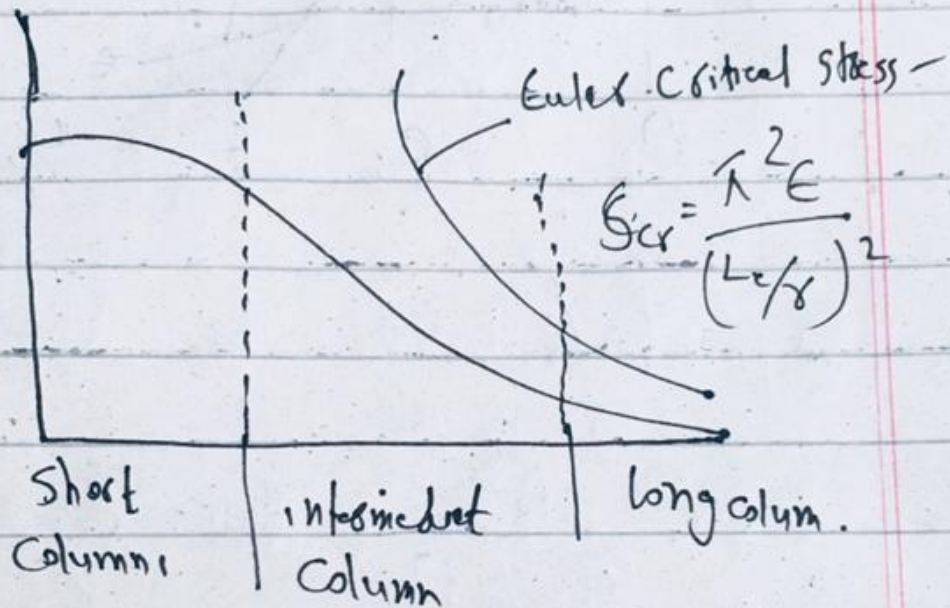 Euler Critical Stress -
σcr = π²E / (Le/r)²
Short
Column,
intermediat
Column
long colum.